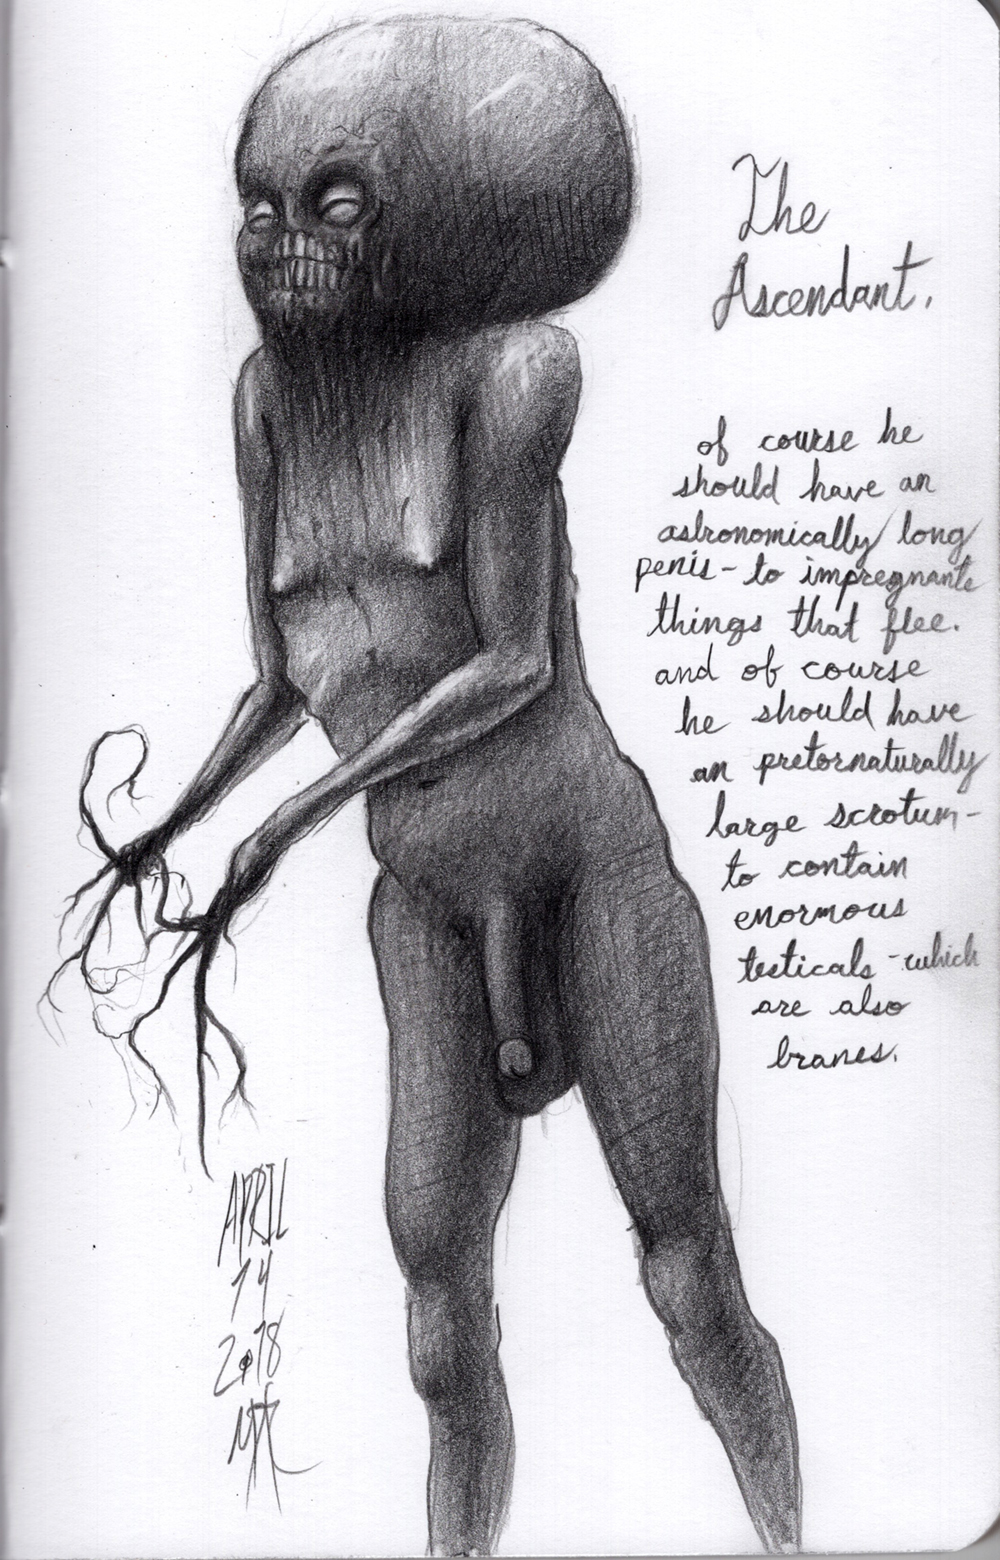 The
Ascendant.
of course he
should have an
astronomically long
penis - to impregnante
things that flee.
and of course
he should have
an pretornaturally
large scrotum -
to contain
enormous
testicals - which
are also
branes.
APRIL
14
2018